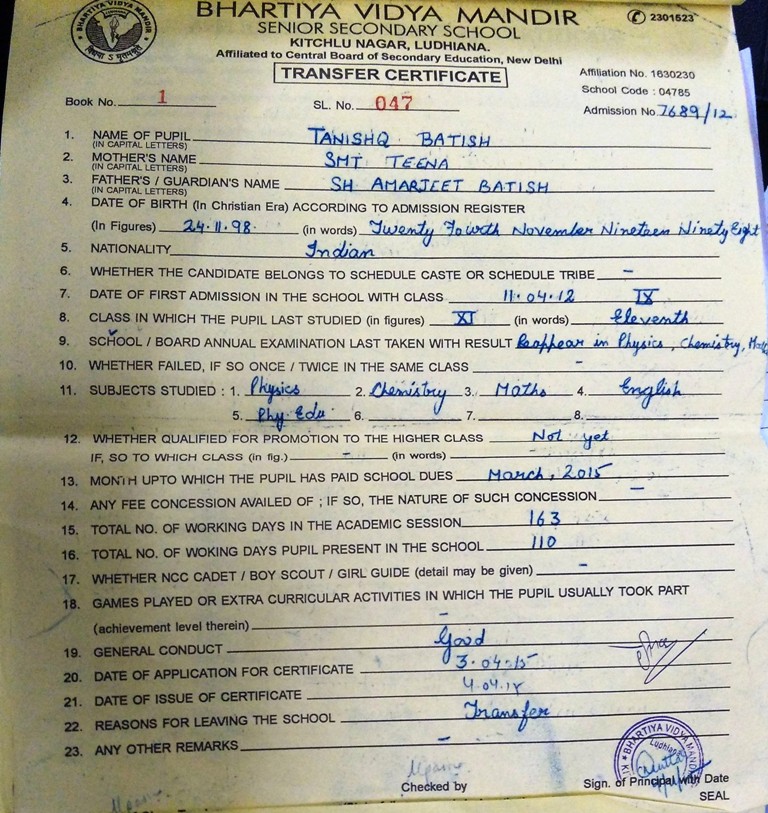 BHARTIYA VIDYA MANDIR
BHARTIYA VIDYA MANDIR
✆ 2301523
SENIOR SECONDARY SCHOOL
KITCHLU NAGAR, LUDHIANA.
Affiliated to Central Board of Secondary Education, New Delhi
TRANSFER CERTIFICATE
Affiliation No. 1630230
School Code : 04785
Book No. 1 SL. No. 047 Admission No. 7689/12
1. NAME OF PUPIL TANISHQ BATISH
(IN CAPITAL LETTERS)
2. MOTHER'S NAME SMT TEENA
(IN CAPITAL LETTERS)
3. FATHER'S / GUARDIAN'S NAME SH AMARJEET BATISH
(IN CAPITAL LETTERS)
4. DATE OF BIRTH (In Christian Era) ACCORDING TO ADMISSION REGISTER
(In Figures) 24.11.98. (in words) Twenty Fourth November Nineteen Ninety Eight
5. NATIONALITY Indian
6. WHETHER THE CANDIDATE BELONGS TO SCHEDULE CASTE OR SCHEDULE TRIBE -
7. DATE OF FIRST ADMISSION IN THE SCHOOL WITH CLASS 11.04.12 IX
8. CLASS IN WHICH THE PUPIL LAST STUDIED (in figures) XI (in words) Eleventh
9. SCHOOL / BOARD ANNUAL EXAMINATION LAST TAKEN WITH RESULT Reappear in Physics, Chemistry,
10. WHETHER FAILED, IF SO ONCE / TWICE IN THE SAME CLASS -
11. SUBJECTS STUDIED : 1. Physics 2. Chemistry 3. Maths 4. English
5. Phy. Edu 6. 7. 8.
12. WHETHER QUALIFIED FOR PROMOTION TO THE HIGHER CLASS Not yet
IF, SO TO WHICH CLASS (in fig.) - (in words)
13. MONTH UPTO WHICH THE PUPIL HAS PAID SCHOOL DUES March, 2015
14. ANY FEE CONCESSION AVAILED OF ; IF SO, THE NATURE OF SUCH CONCESSION -
15. TOTAL NO. OF WORKING DAYS IN THE ACADEMIC SESSION 163
16. TOTAL NO. OF WOKING DAYS PUPIL PRESENT IN THE SCHOOL 110
17. WHETHER NCC CADET / BOY SCOUT / GIRL GUIDE (detail may be given) -
18. GAMES PLAYED OR EXTRA CURRICULAR ACTIVITIES IN WHICH THE PUPIL USUALLY TOOK PART
(achievement level therein) -
19. GENERAL CONDUCT Good
20. DATE OF APPLICATION FOR CERTIFICATE 3.04.15
21. DATE OF ISSUE OF CERTIFICATE
22. REASONS FOR LEAVING THE SCHOOL Transfer
23. ANY OTHER REMARKS -
BHARTIYA VIDYA MANDIR
Ludhiana
Checked by
Sign. of Principal with Date
SEAL